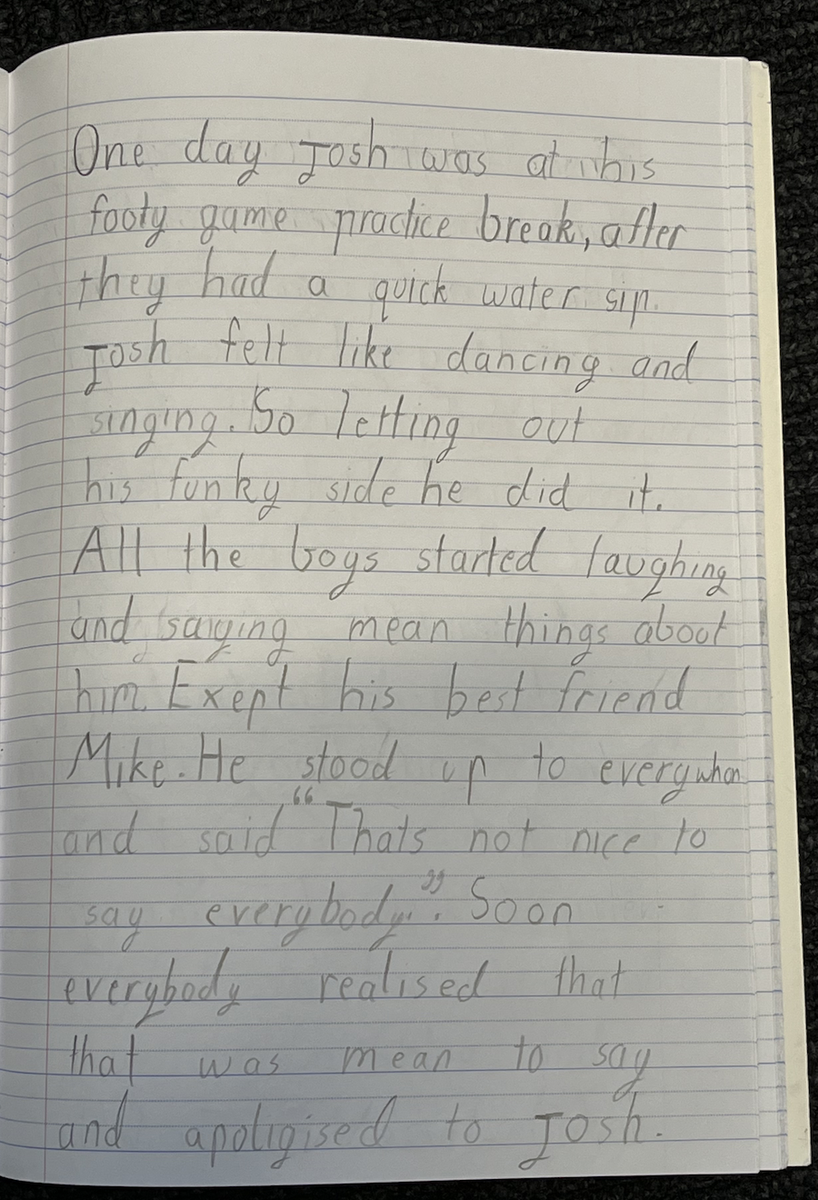 One day Josh was at his
footy game practice break, after
they had a quick water sip.
Josh felt like dancing and
singing. So letting out
his funky side he did it.
All the boys started laughing
and saying mean things about
him. Exept his best friend
Mike. He stood up to everywhon
and said "Thats not nice to
say everybody.". Soon
everybody realised that
that was mean to say
and apoligised to Josh.